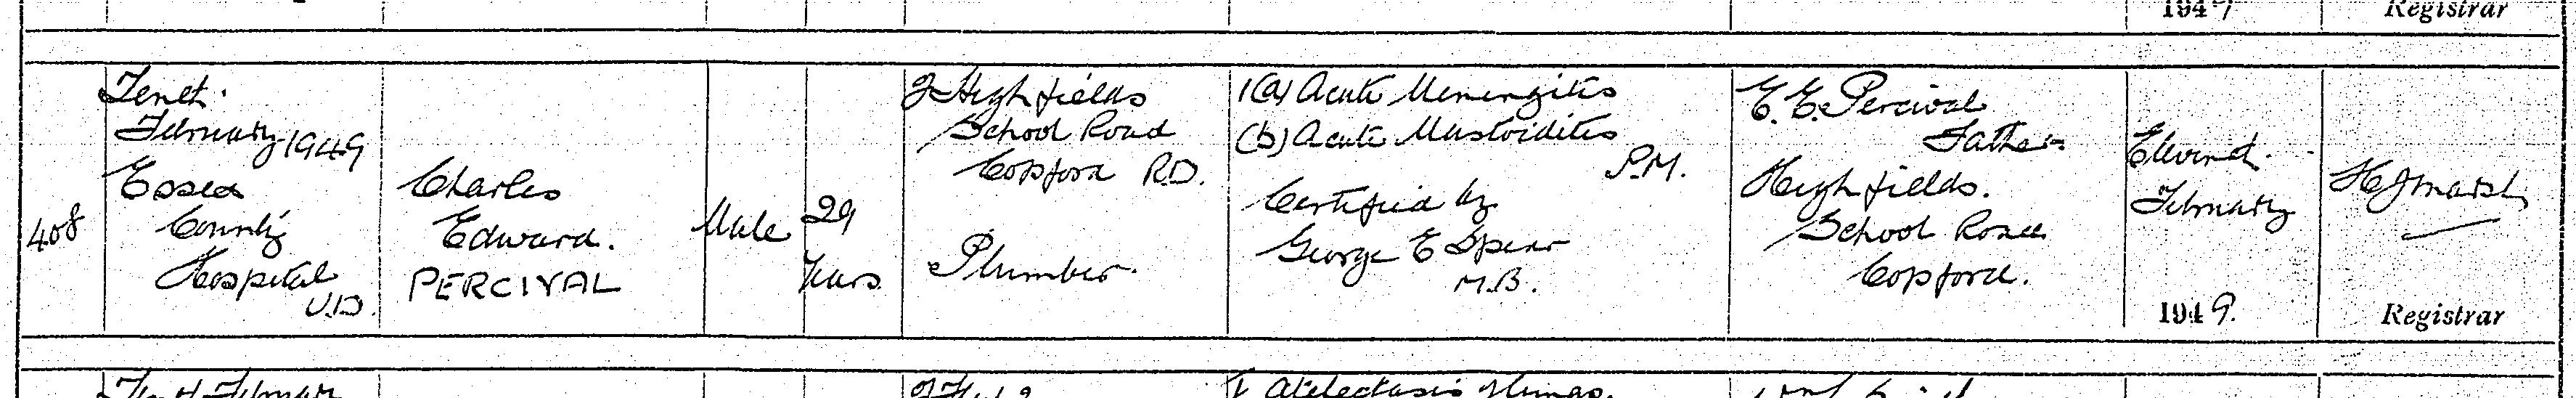 1949
Registrar
408
Tenth
February 1949
Essex
County
Hospital
U.D.
Charles
Edward.
PERCIVAL
Male
29
Years
of Highfields
School Road
Copford R.D.
Plumber.
1(a) Acute Meningitis
(b) Acute Mastoiditis
P.M.
Certified by
George E Spear
M.B.
E. E. Percival
Father
Highfields.
School Road
Copford.
Eleventh
February
1949.
H J Marsh
Registrar
Tenth February
1 Atelectasis